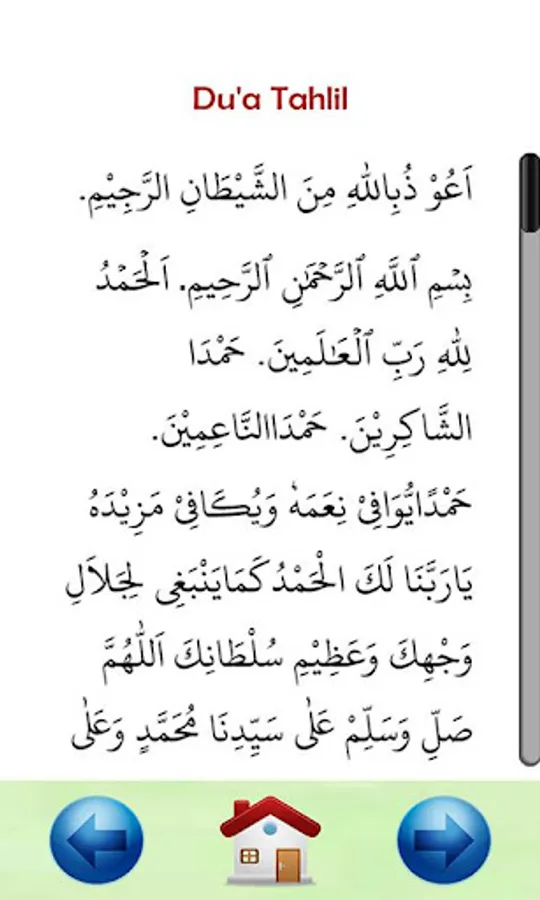 Du'a Tahlil
اَعُوْ ذُبِاللهِ مِنَ الشَّيْطَانِ الرَّجِيْمِ.
بِسْمِ ٱللَّهِ ٱلرَّحْمَٰنِ ٱلرَّحِيمِ. اَلْحَمْدُ
لِلّٰهِ رَبِّ ٱلْعَـٰلَمِينَ. حَمْدَا
الشَّاكِرِيْنَ. حَمْدَاالنَّاعِمِيْنَ.
حَمْدًايُّوَافِيْ نِعَمَهٗ وَيُكَافِيْ مَزِيْدَهُ
يَارَبَّنَا لَكَ الْحَمْدُكَمَايَنْبَغِى لِجَلاَلِ
وَجْهِكَ وَعَظِيْمِ سُلْطَانِكَ اَللّٰهُمَّ
صَلِّ وَسَلِّمْ عَلٰى سَيِّدِنَا مُحَمَّدٍ وَعَلٰى